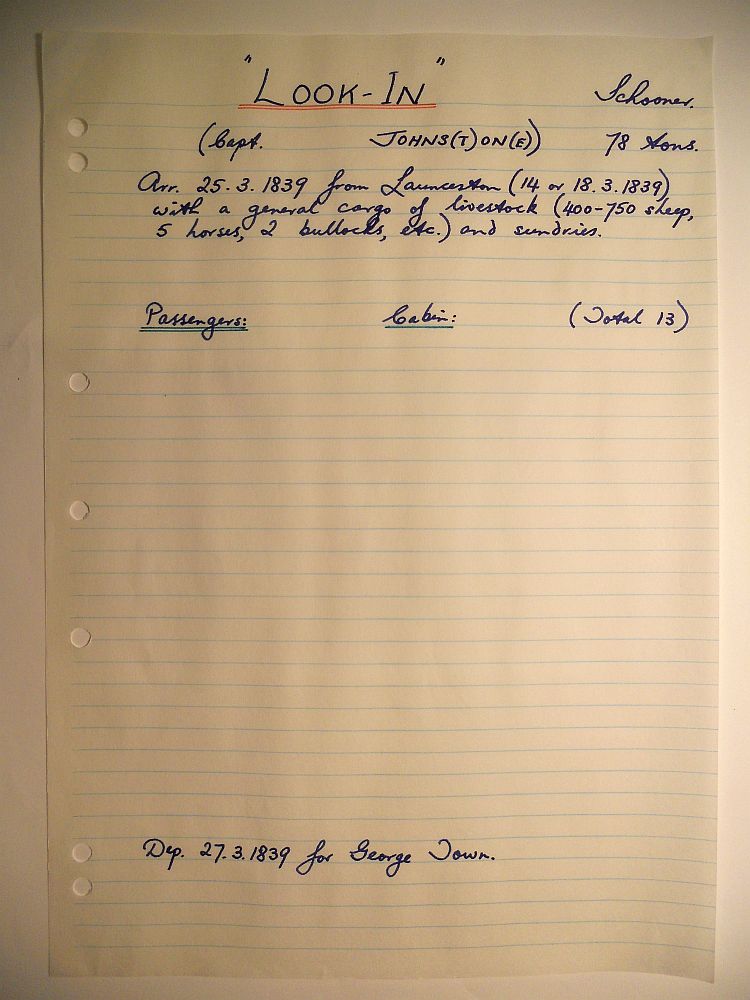 "LOOK-IN" Schooner.
(Capt. JOHNS(T)ON(E)) 78 tons.
Arr. 25.3.1839 from Launceston (14 or 18.3.1839)
with a general cargo of livestock (400-750 sheep,
5 horses, 2 bullocks, etc.) and sundries.
Passengers: Cabin: (Total 13)
Dep. 27.3.1839 for George Town.